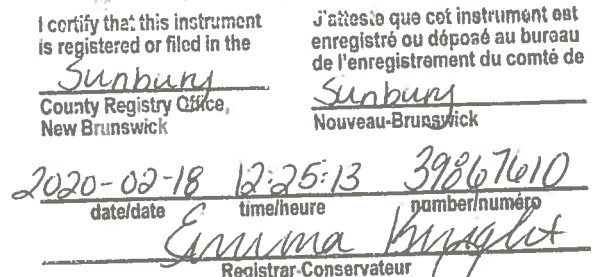 I certify that this instrument
is registered or filed in the
Sunbury
County Registry Office,
New Brunswick
J'atteste que cet instrument est
enregistré ou déposé au bureau
de l'enregistrement du comté de
Sunbury
Nouveau-Brunswick
2020-02-18 12:25:13 39867610
date/date time/heure number/numéro
Emma Knight
Registrar-Conservateur